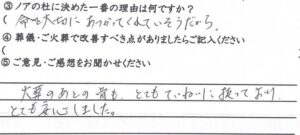 ③ノアの杜に決めた一番の理由は何ですか？
( 命を大切に あつかってくれていそうだから。
④ 葬儀・ご火葬で改善すべき点がありましたらご記入ください
(
⑤ご意見・ご感想をお聞かせください
火葬のあとの骨も、とてもていねいに扱っており、
とても安心しました。